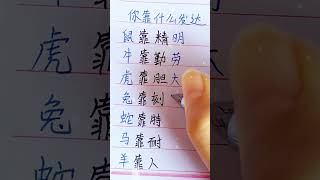 你靠什么发达
鼠靠精明
牛靠勤劳
虎靠胆大
兔靠刻
蛇靠
马靠耐
羊靠人
虎
兔
蛇